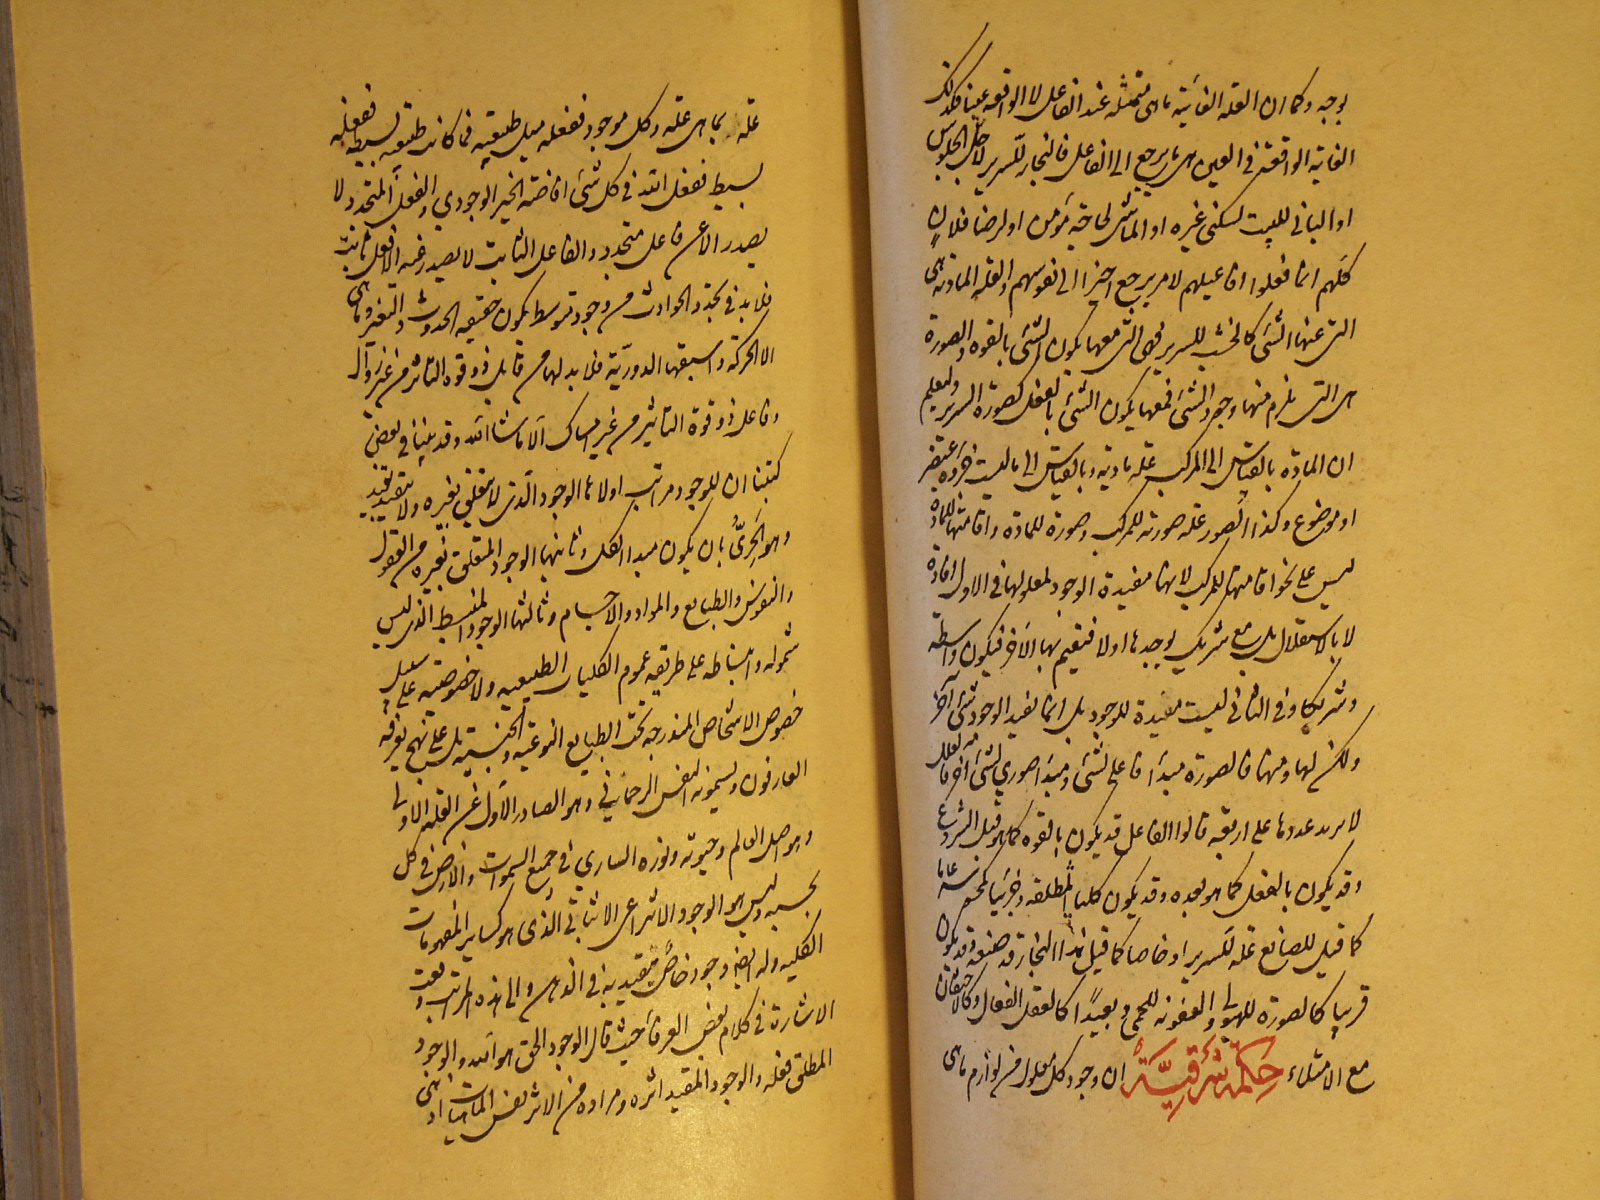 بوجه وكما ان العله الغائية ماهى متمثله عند الفاعل لا الواقعه عينا فكذلك
الغاية الواقعة فى العين هى ما يرجع الى الفاعل فالنجار للسرير لاجل الجلوس
او البانى للبيت لسكنى غيره او الماشى لحاجة مؤمن او لرضا فلان
كلهم انما فعلوا افاعيلهم لامر يرجع اخيرا الى نفوسهم والعله المادية هى
التى عنها الشئ كالخشب للسرير فهى التى معها يكون الشئ بالقوه والصورة
هى التى يلزم منها وجود الشئ فمعها يكون الشئ بالفعل كصورة السرير وليعلم
ان المادة بالقياس الى المركب عله مادية وبالقياس الى ما ليست جزوه عنصر
او موضوع وكذا الصور عله صورية للمركب وصورة للمادة واقامتها للمادة
ليس على نحو اقامتها للمركب لانها مفيدة الوجود لمعلولها فى الاول افادة
لا بالاستقلال بل مع شريك يوجدها اولا فتقيم بها الآخر فيكون واسطة
وشريكا وفى الثانى ليست مفيدة للوجود بل انما يفيد الوجود شئ آخر
ولكن لها ومنها فالصورة مبدأ فاعلى لشئ ومبدأ صوري لشئ آخر فالعلل
لا يزيد عددها على اربعه قالوا الفاعل قد يكون بالقوه كما هو قبل الشروع
وقد يكون بالفعل كما هو بعده وقد يكون كليا وجزئيا عاما
كما قيل للصانع عله للسرير او خاصا كما قيل هذا النجار قد صنعه وقد يكون
قريبا كالصورة للهيولى والعفونه للحمى وبعيدا كالعقل الفعال وكالاحتقان
مع الامتلاء حكمة شرقية ان وجود كل معلول من لوازم ماهى
علته بما هى علته وكل موجود ففعله مثل طبيعته فما كانت طبيعته بسيطه ففعله
بسيط ففعل الله فى كل شئ افاضة الخير الوجودي والفعل المتجدد لا
يصدر الا عن فاعل متجدد والفاعل الثابت لا يصدر عنه الا فعل ثابت
فلا بد فى تجدد الحوادث من وجود متوسط يكون حقيقه الحدوث والتغير وما هى
الا الحركة واسبقها الدورية فلا بد لها من قابل ذو قوه التاثر من غير زوال
وفاعل ذو قوة التاثير من غير امساك الا ما شاء الله وقد بينا فى بعض
كتبنا ان للوجود مراتب اولاها الوجود الذى لا يتعلق بغيره ولا يتقيد بقيد
وهو الحرى بان يكون مبدا الكل وثانيها الوجود المتعلق بغيره من العقول
والنفوس والطبايع والمواد والاجسام وثالثها الوجود المنبسط الذى ليس
شموله وانبساطه على طريقه عموم الكليات الطبيعيه ولا خصوصيته على سبيل
خصوص الاشخاص المندرجه تحت الطبايع النوعيه والجنسية بل على نهج يعرفه
العارفون ويسمونه النفس الرحمانى وهو الصادر الاول عن العله الاولى
وهو اصل العالم وحيوته ونوره الساري فى جميع السموات والارض فى كل
بحسبه وليس هو الوجود الانتزاعى الاثباتى الذى هو كساير المفهومات
الكليه وله ايضا وجود خاص يتقيد به فى الذهن والى هذه المراتب وقعت
الاشارة فى كلام بعض العرفاء حيث قال الوجود الحق هو الله والوجود
المطلق فعله والوجود المقيد اثره ومراده من الاثر نفس الماهيات اذ هى